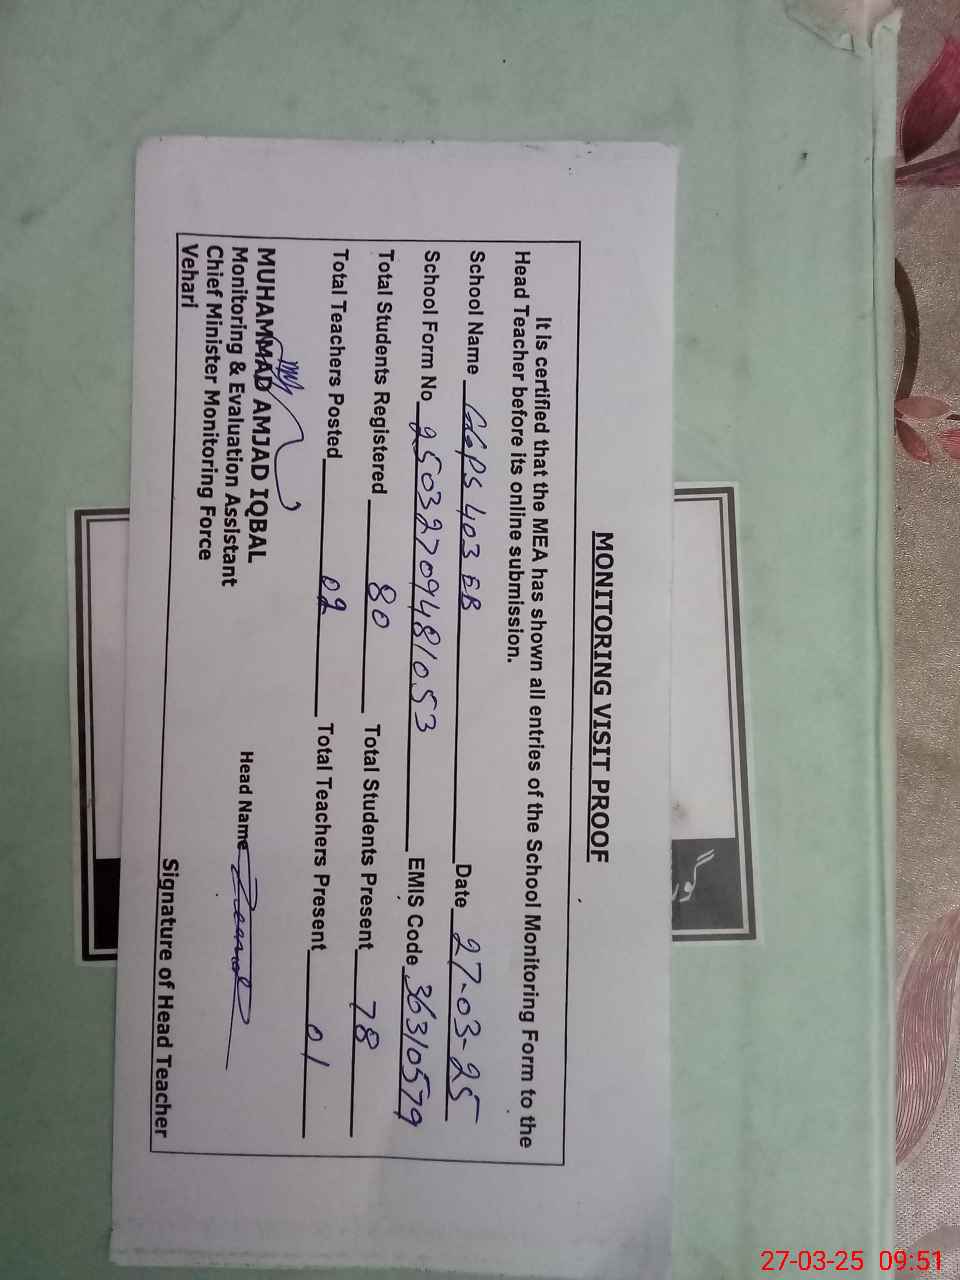 MONITORING VISIT PROOF
It Is certified that the MEA has shown all entries of the School Monitoring Form to the
Head Teacher before its online submission.
School Name GGPS 403 EB Date 27-03-25
School Form No 25032709481053 EMIS Code 36310579
Total Students Registered 80 Total Students Present 78
Total Teachers Posted 02 Total Teachers Present 01
MUHAMMAD AMJAD IQBAL
Monitoring & Evaluation Assistant
Chief Minister Monitoring Force
Vehari
Head Name
Signature of Head Teacher
27-03-25 09:51